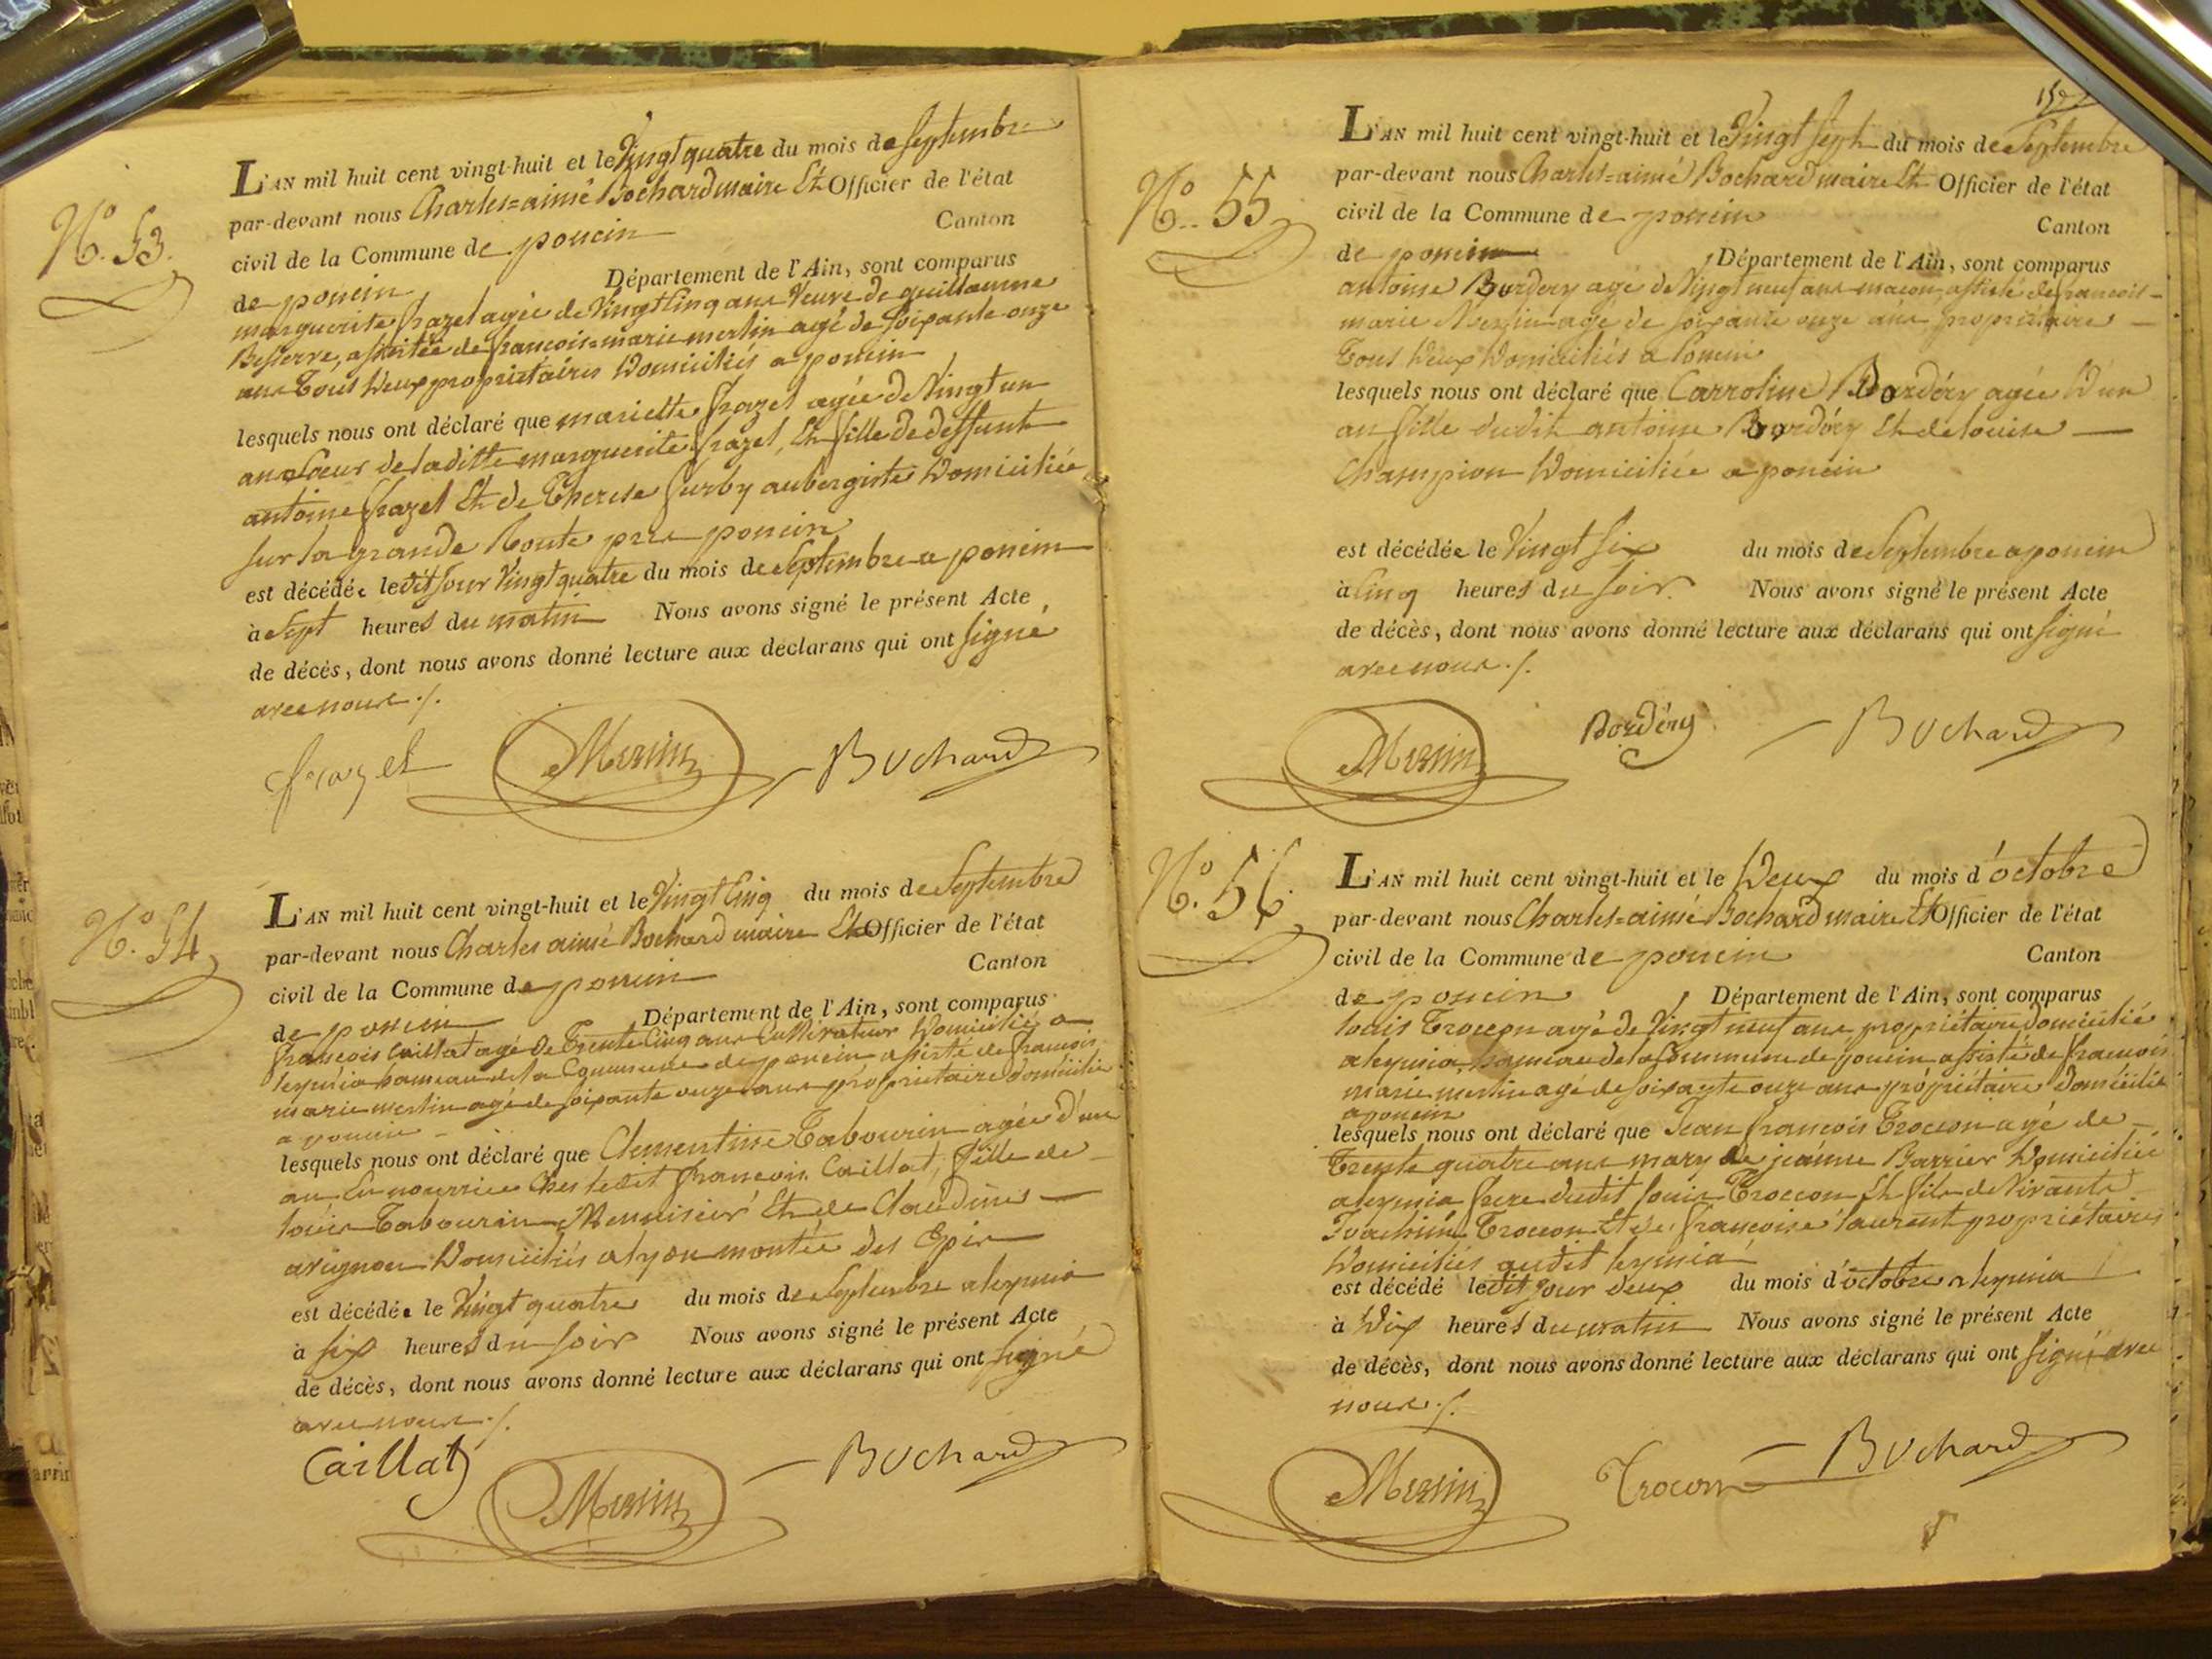 N.º 53.
L'AN mil huit cent vingt-huit et le Vingt quatre du mois de Septembre
par-devant nous Charles=aimé Bochard maire Et Officier de l'état
civil de la Commune de poncin Canton
de poncin Département de l'Ain, sont comparus
marguerite frazet agée de Vingt Cinq ans Veuve de guillaume
Besserre, assistée de francois=marie merlin agé de Soixante onze
ans Tous Deux propriétaires Domiciliés a poncin
lesquels nous ont déclaré que mariette frazet agée de Vingt un
an Sœur de laditte marguerite frazet, Et fille de deffunt
antoine frazet Et de Therese Surby aubergiste Domiciliée
Sur la grande Route près poncin
est décédée le dit Jour Vingt quatre du mois de Septembre a poncin
à Sept heures du matin Nous avons signé le présent Acte
de décès, dont nous avons donné lecture aux déclarans qui ont Signé
avec nous ./.
frazet Merlin Bochard
N.º 54
L'AN mil huit cent vingt-huit et le Vingt Cinq du mois de Septembre
par-devant nous Charles aimé Bochard maire Et Officier de l'état
civil de la Commune de poncin Canton
de poncin Département de l'Ain, sont comparus
francois Caillat agé de Trente Cinq ans Cultivateur Domicilié a
leymia hameau de la Commune de poncin assisté de francois
marie merlin agé de Soixante onze ans propriétaire domicilié
a poncin
lesquels nous ont déclaré que Clementine Tabourin agée d'un
an En nourrice Ches ledit francois Caillat, fille de
louis Tabourin Menuisier Et de Claudine
avignon Domiciliés a lyon montée des Epies
est décédée le Vingt quatre du mois de Septembre a leymia
à Six heures du Soir Nous avons signé le présent Acte
de décès, dont nous avons donné lecture aux déclarans qui ont Signé
avec nous ./.
Caillat Merlin Bochard
N.º 55
L'AN mil huit cent vingt-huit et le Vingt Sept du mois de Septembre
par-devant nous Charles=aimé Bochard maire Et Officier de l'état
civil de la Commune de poncin Canton
de poncin Département de l'Ain, sont comparus
antoine Bordéry agé de Vingt neuf ans macon, assisté de francois
marie Merlin agé de Soixante onze ans propriétaire
Tous Deux Domiciliés a Poncin
lesquels nous ont déclaré que Carroline Bordéry agée D'un
an fille dudit antoine Bordéry Et de louise
Champion Domiciliée a poncin
est décédée le Vingt Six du mois de Septembre a poncin
à Cinq heures du Soir. Nous avons signé le présent Acte
de décès, dont nous avons donné lecture aux déclarans qui ont Signé
avec nous ./.
Merlin Bordéry Bochard
N.º 56
L'AN mil huit cent vingt-huit et le Deux du mois d'octobre
par-devant nous Charles=aimé Bochard maire Et Officier de l'état
civil de la Commune de poncin Canton
de poncin Département de l'Ain, sont comparus
louis Troccon agé de Vingt neuf ans propriétaire domicilié
a leymia, hameau de la Commune de poncin assisté de francois
marie merlin agé de Soixante onze ans propriétaire Domicilié
a poncin
lesquels nous ont déclaré que Jean francois Troccon agé de
Trente quatre ans mary de jeanne Barrier Domicilié
a leymia frere dudit louis Troccon Et fils de Vivants
Joachim Troccon Et de francoise laurent propriétaires
Domiciliés audit leymia
est décédé le dit jour deux du mois d'octobre a leymia
à Dix heures du matin Nous avons signé le présent Acte
de décès, dont nous avons donné lecture aux déclarans qui ont Signé avec
nous ./.
Merlin Trocon Bochard